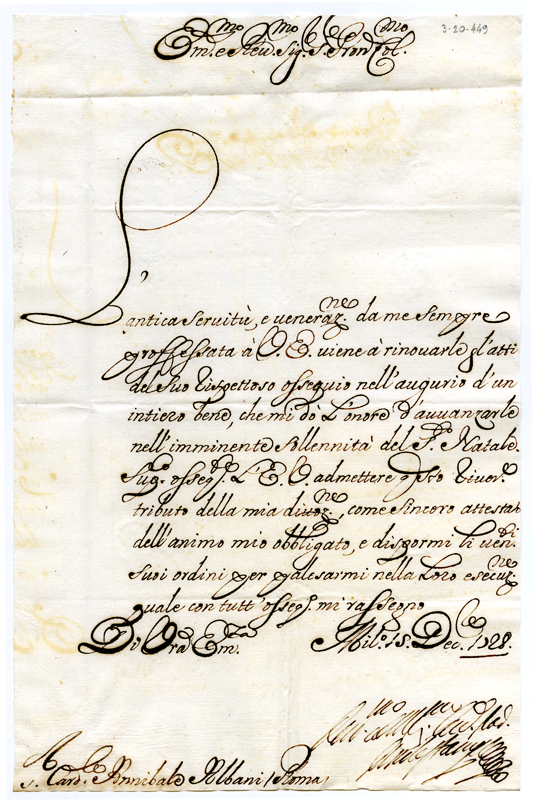 3-20-449
Em.mo e Rev.mo Sig.r S.r Pron Col.mo
L'antica seruitù, e veneraz.ne da me sempre
proffessata à V. E. uiene à rinouarle gl'atti
del suo rispettoso ossequio nell'augurio d'un
intiero bene, che mi dò l'onore d'auuanzarle
nell'imminente sollennità del S. Natale.
Sup.co osseq.te L'E. V. admettere q.sto riuer.e
tributo della mia diuoz.ne, come sincero attestat
dell'animo mio obbligato, e dispormi li ueri
suoi ordini per palesarmi nella loro esecuz.ne
quale con tutt' osseq.o mi rassegno
Di Vra Em.za Mil.o 18. Dec.le 1728.
S. Card.le Annibale Albani / Roma /